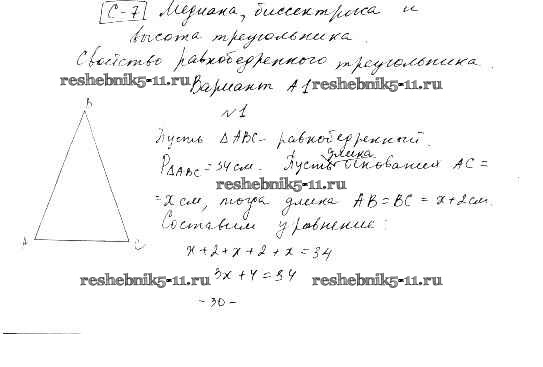 С-7 Медиана, биссектриса и
высота треугольника.
Свойство равнобедренного треугольника.
reshebnik5-11.ru Вариант А1 reshebnik5-11.ru
№1
B
Пусть ΔABC - равнобедренный.
длина
P ΔABC = 34 см. Пусть основания AC =
reshebnik5-11.ru
= x см, тогда длина AB = BC = x+2 см.
Составим уравнение:
A C
x + 2 + x + 2 + x = 34
reshebnik5-11.ru 3x + 4 = 34 reshebnik5-11.ru
- 30 -